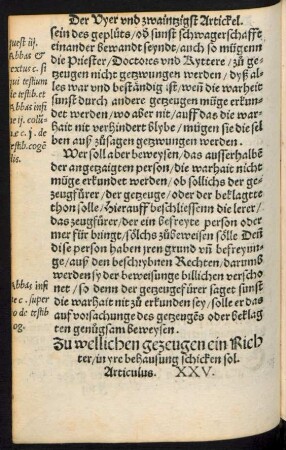 Der Vyer vnd zwaintzigst Artickel.
sein des geplůtes/ oð sunst schwagerschafft
einander bewandt seyndt/ auch so mügenn
die Priester/ Doctores vnd Ryttere/ zů ge-
zeugen nicht getzwungen werden/ dyß al-
les war vnd bestãndig ist/ weñ die warheit
sunst durch andere getzeugen müge erkun-
det werden/ wo aber nit/ auff das die war-
hait nit verhindert blybe/ mügen sie die sel
ben auß zůsagen getzwungen werden.
Wer soll aber beweysen/ das ausserhalbẽ
der angetzaigten person/ die warhait nicht
müge erkundet werden/ ob sollichs der ge-
zeugfürer/ der getzeuge/ oder der beklagte
thon sölle/ Hierauff beschliessenn die lerer/
das zeugfürer/ der ein befreyte person oder
mer für bringt/ sölchs zůbeweisen sölle Deñ
dise person haben jren grund vñ befreyun-
ge/ auß den beschrybnen Rechten/ darumb
werden sy der beweisunge billichen verscho
net/ so denn der getzeugefürer saget sunst
die warhait nit zů erkunden sey/ solle er das
auf vorsachunge des getzeugẽs oder beklag
ten genůgsam beweysen.
Zu wellichen gezeugen ein Rich
ter/ in yre behausung schicken sol.
Articulus. XXV.
quest iij.
Abbas &
textus c. si
qui testium
de testib. et
Abbas infi
ne ij. colũ-
ne c. j. de
testib. cogẽ
dis.
Abbas infi
ne c. super
eo de testib
cog.